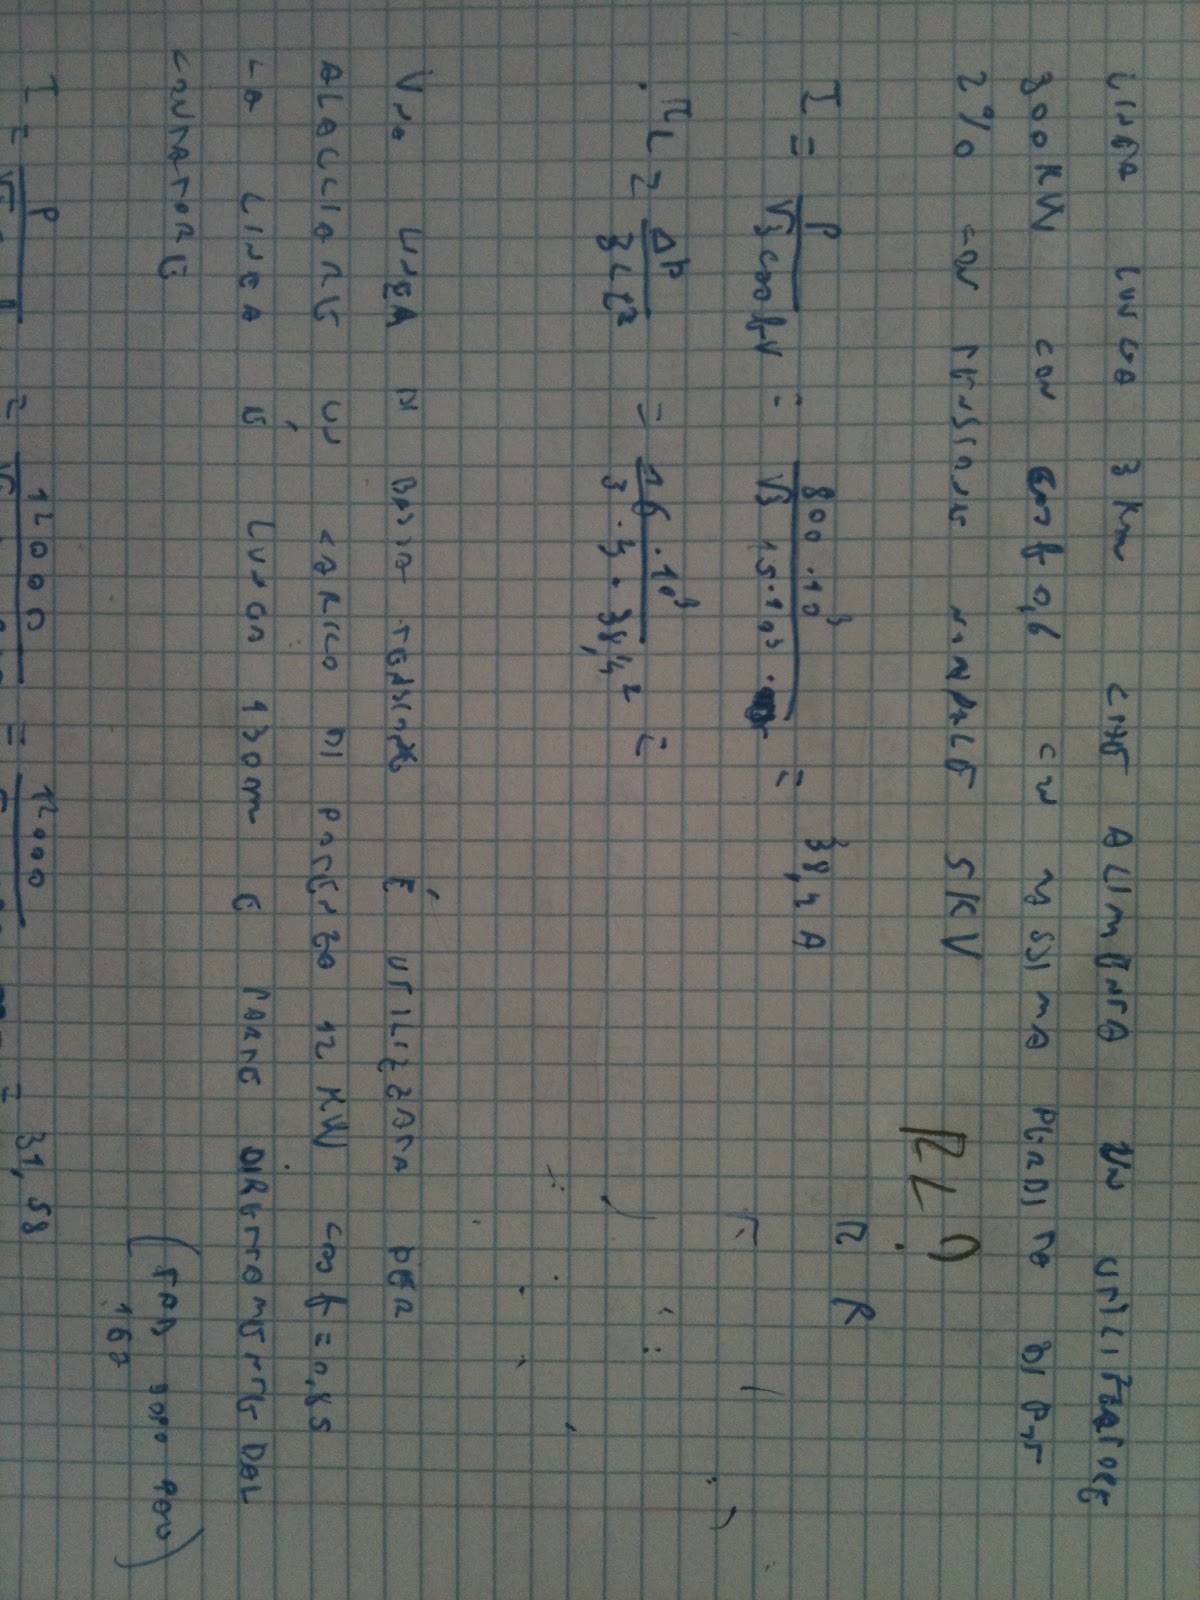 LINEA LUNGA 3 Km CHE ALIMENTA UN UTILIZZATORE
800 KW CON cosf 0,6 CON MASSIMA PERDITA DI POT
2% CON TENSIONE NOMINALE 5KV
RL ?
R R
I = P / √3 cosf V = 800 · 10³ / √3 15 · 10³ · = 38,4 A
rL = ΔP / 3 L I² = 16 · 10³ / 3 · 3 · 38,4² =
Una LINEA DI BASSA TENSIONE È UTILIZZATA PER
ALACCIARE UN CARICO DI POTENZA 12 KW cos f = 0,85
LA LINEA È LUNGA 130m E PARTE DIRETTAMENTE DAL
CONTATORE
(TAB DOPO
160)
I = P / √3 = 12000 / √3 = 12000 / = 31,58